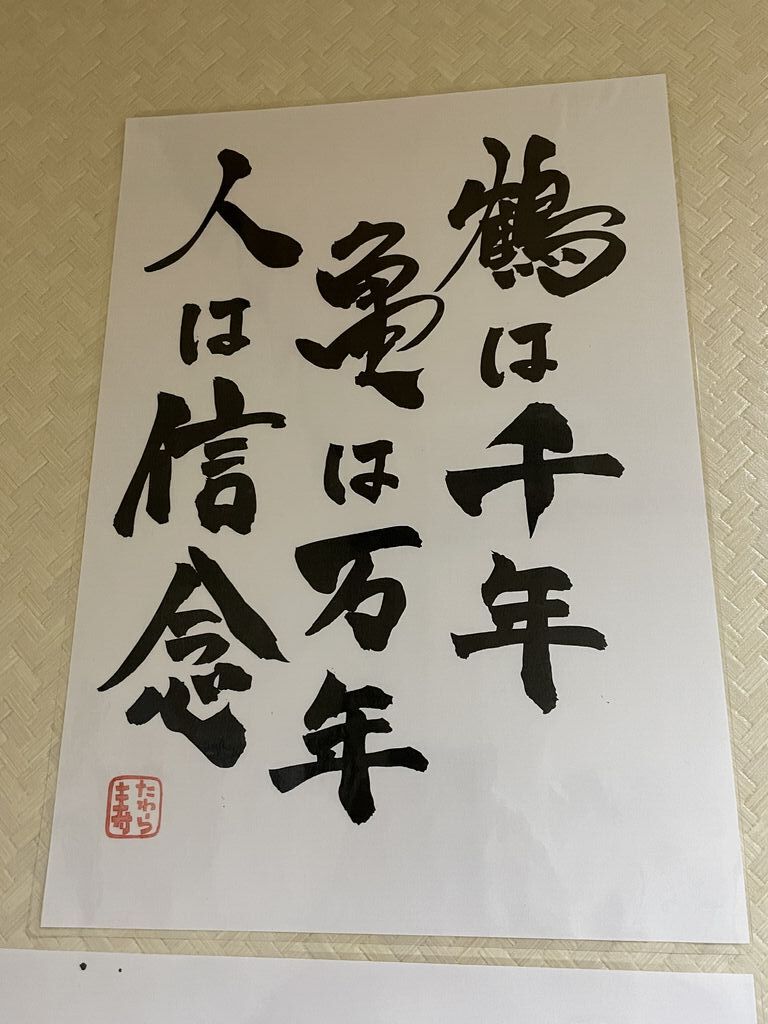 鶴は千年
亀は万年
人は信念
たわら
寿